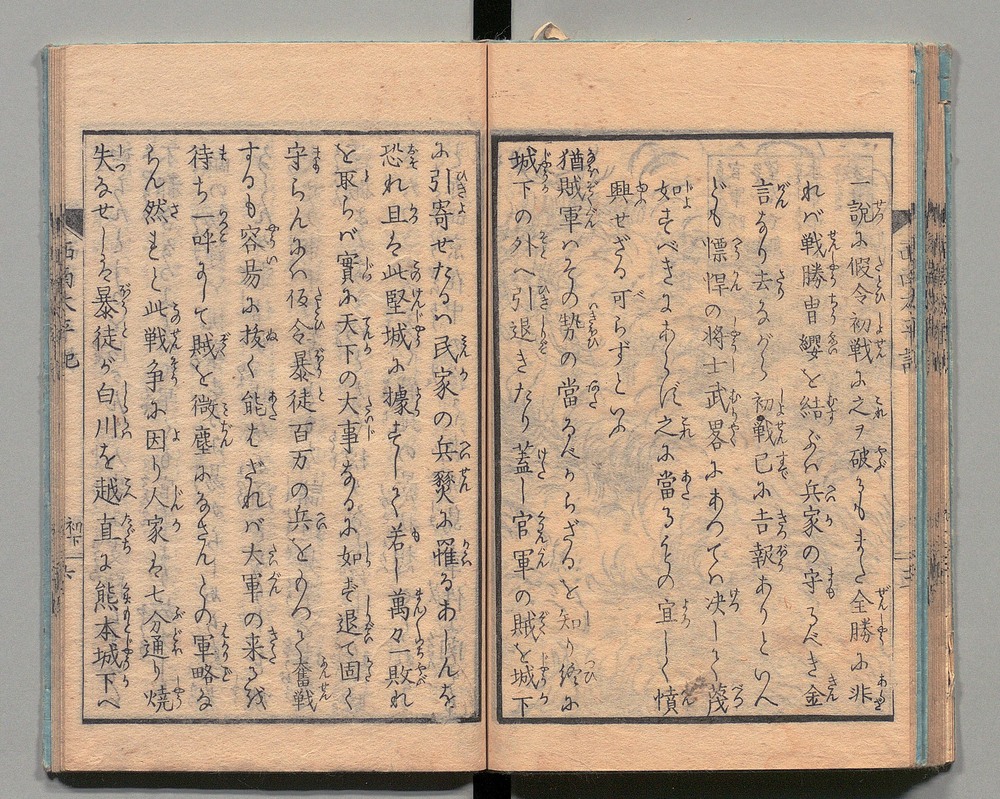 一説に假令初戦に之ヲ破るもまた全勝に非
れバ戦勝冑纓を結ぶハ兵家の守るべき金
言なり去ながら初戦已に吉報ありといへ
ども慓悍の将士武畧にあつてハ决して蔑
如すべきにあらず之に當るもの宜しく憤
興せざる可らずといふ
猶賊軍ハその勢の當るべからざるを知り終に
城下の外へ引退きたり蓋し官軍の賊を城下
に引寄せたるハ民家の兵燹に罹るあしんを
恐れ且は此堅城に據すして若し萬々一敗れ
を取らバ實に天下の大事なるに如ず退て固く
守らんにハ仮令暴徒百万の兵をもつて奮戦
するも容易に抜く能はざれバ大軍の来るを
待ち一呼にして賊を微塵になさんとの軍略な
らん然もと此戦争に因り人家は七分通り焼
失なせしは暴徒が白川を越直に熊本城下へ
西南太平記
初下